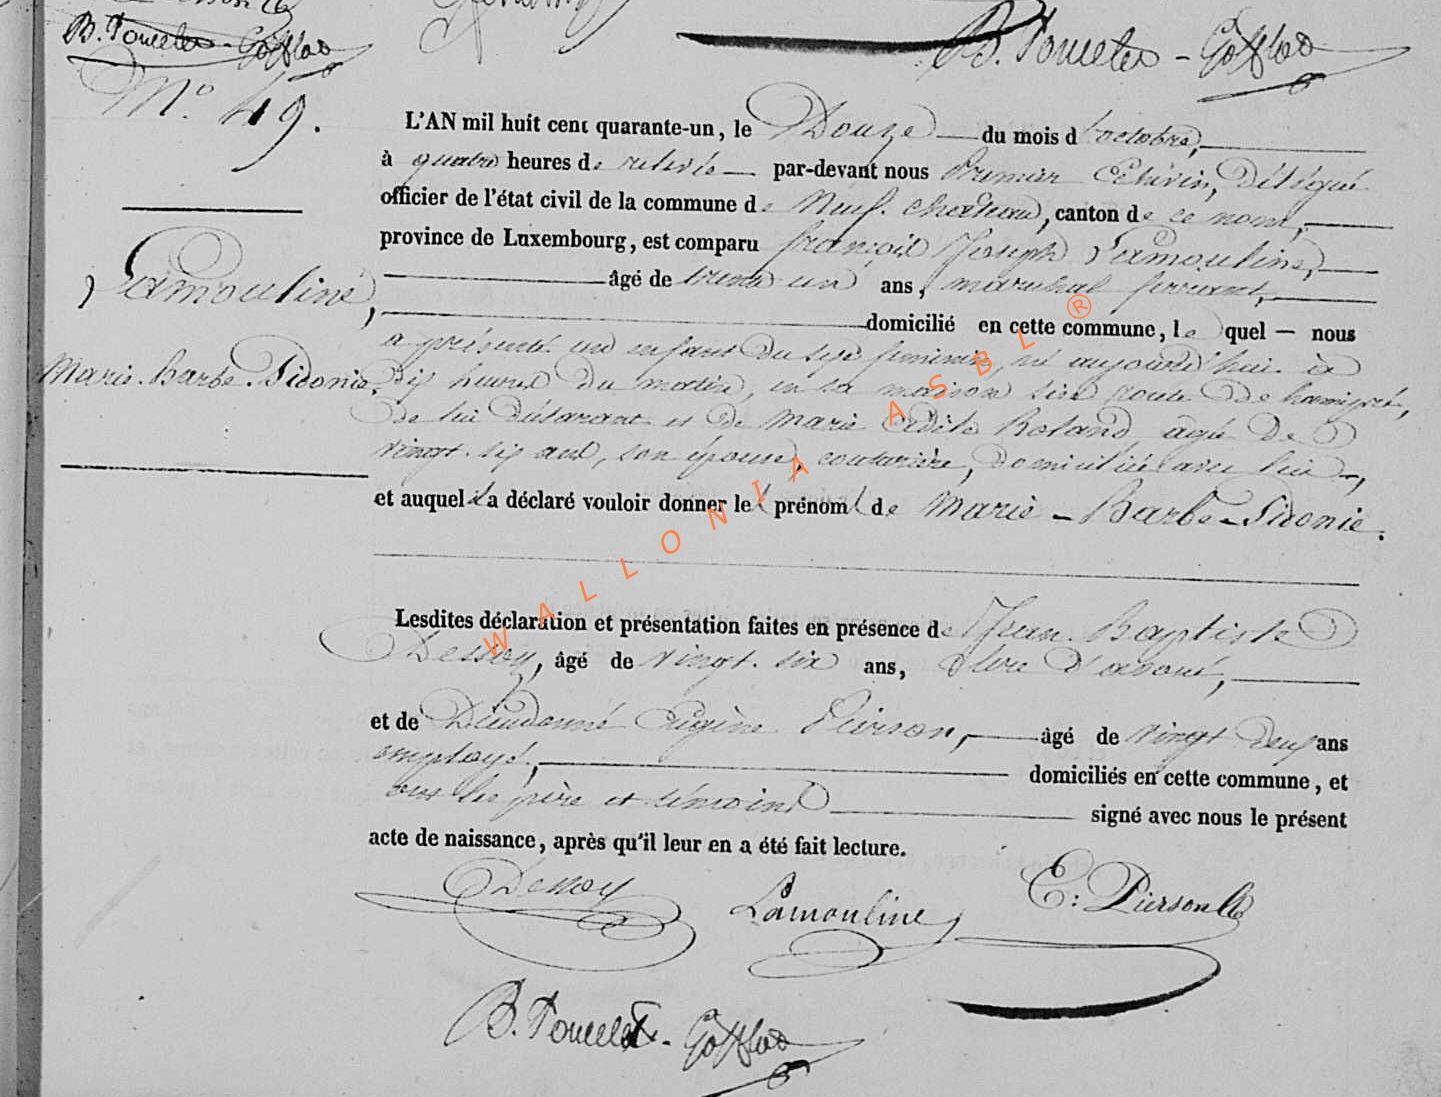 B. Poncelet - Gofflot
B. Poncelet - Gofflot
N.° 49.
L'AN mil huit cent quarante-un, le Douze du mois d'octobre,
à quatre heures de relevée par-devant nous Premier Echevin, délégué
officier de l'état civil de la commune de Neuf-chateau, canton de ce nom,
province de Luxembourg, est comparu françois Joseph Lamouline,
âgé de trente un ans, marechal ferrant,
domicilié en cette commune, le quel nous
Lamouline,
Marie-Barbe-Sidonie.
a présenté un enfant du sexe feminin, né aujourd'hui à
dix heures du matin, en sa maison sise route de hamipré,
de lui déclarant et de Marie Adèle Roland agée de
vingt-six ans, son épouse, couturière, domiciliée avec lui,
et auquel il a déclaré vouloir donner le prénom de Marie-Barbe-Sidonie.
Lesdites déclaration et présentation faites en présence de Jean-Baptiste
Dessoy, âgé de vingt-six ans, clerc d'avoué,
et de Dieudonné Eugène Pierson, âgé de vingt deux ans
employé, domiciliés en cette commune, et
ont les père et témoins signé avec nous le présent
acte de naissance, après qu'il leur en a été fait lecture.
Dessoy Lamouline E: Pierson
B. Poncelet - Gofflot
WALLONIA ASBL ®